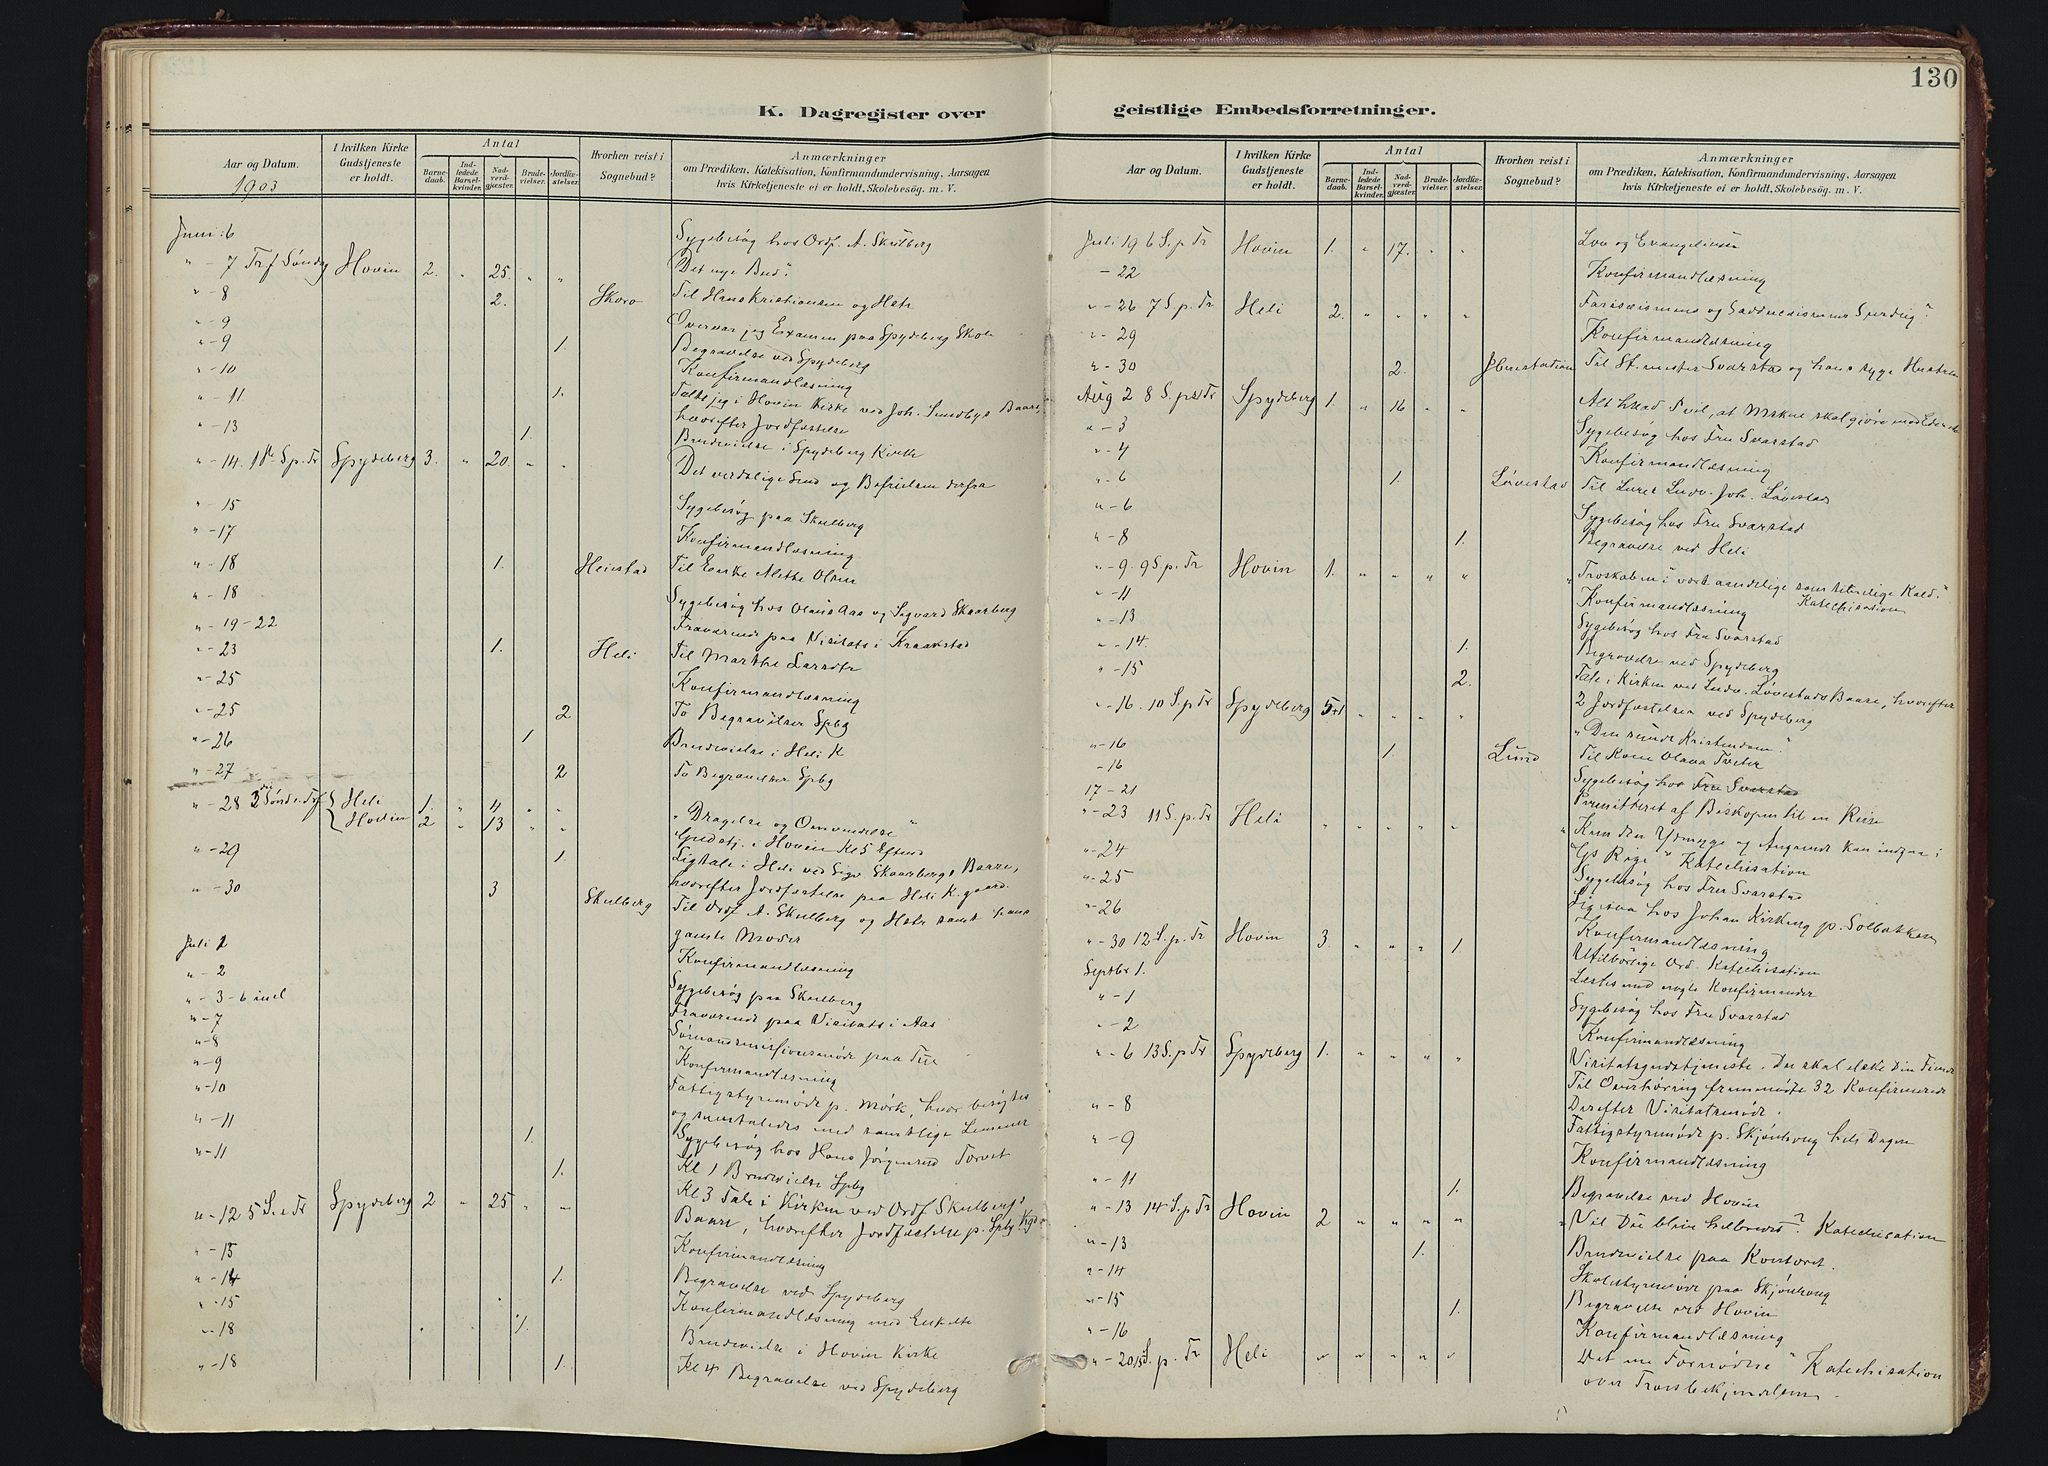 130
K. Dagregister over geistlige Embedsforretninger.
Aar og Datum.
1903
I hvilken Kirke Gudstjeneste er holdt.
Antal
Barnedaab.
Indledede Barselkvinder.
Nadverdgjæster.
Brudevielser.
Jordfæstelser.
Hvorhen reist i Sognebud?
Anmærkninger
om Prædiken, Katekisation, Konfirmandundervisning, Aarsagen
hvis Kirketjeneste ei er holdt, Skolebesøg. m. V.
Juni 6 Sygebesøg hos Ordf. A. Skulberg
" - 7 Trf Søndag Hovin 2. " 25. " " Det nye Bud".
" - 8 2. Skoro Til Hans Kristiansen og Hstr
" - 9 Overvar jeg Examen paa Spydeberg Skole
" - 9 1. Begravelse ved Spydeberg
" - 10 Konfirmandlæsning
" - 11 1. Talte jeg i Hovin Kirke ved Joh. Sundbys Baare, hvorefter Jordfæstelse
" - 13 1. Brudevielse i Spydeberg Kirke
" - 14. 1ste S. p. Tr Spydeberg 3. " 20. " " Det verdslige Sind og Befrielsen derfra
" - 15 Sygebesøg paa Skulberg
" - 17 Konfirmandlæsning
" - 18 1. Heiestad Til Enke Alethe Olsen
" - 18 Sygebesøg hos Olaus Aas og Sigvard Skaarberg
" - 19-22 Fraværende paa Visitats i Kraakstad
" - 23 1. Heli Til Marthe Larsdtr
" - 25 Konfirmandlæsning
" - 25 2 To Begravelser Spbg
" - 26 1 Brudevielse i Heli K
" - 27 2 To Begravelser Spbg
" - 28 3die Sønd e. Trf Heli 1. " 4 " " "Dragelse og Omvendelse"
Hovin 2 " 13 " " Gudstj. i Hovin Kl 5 Efterm
" - 29 1. Ligtale i Heli ved Sigv Skaarbergs Baare, hvorefter Jordfæstelse paa Heli K. gaard.
" - 30 3 Skulberg Til Ordf A. Skulberg og Hstr samt hans gamle Moder
Juli 1 Konfirmandlæsning
" - 2 Sygebesøg paa Skulberg
" - 3-6 incl Fraværende paa Visitats i Aas
" - 7 Sømandsmissionsmøde paa
" - 8 Konfirmandlæsning
" - 9 Fattigstyremøde p. Mørk, hvor besøgtes
" - 10 og samtaledes med samtlige Lemmer
" - 11 Sygebesøg hos Hans Jørgensen Torvet
" - 11 1. Kl 1 Brudevielse Spbg
1. Kl 3 Tale i Kirken ved Ordf Skulbergs Baare, hvorefter Jordfæstelse p. Spbg Kgd
" - 12 5 S. e Tr Spydeberg 2 " 25 " "
" - 13 Konfirmandlæsning
" - 14 1. Begravelse ved Spydeberg
" - 15 Konfirmandlæsning med Enkelte
" - 18 1. Brudevielse i Hovin Kirke
" - 18 1. Kl 4 Begravelse ved Spydeberg
Aar og Datum.
I hvilken Kirke Gudstjeneste er holdt.
Antal
Barnedaab.
Indledede Barselkvinder.
Nadverdgjæster.
Brudevielser.
Jordfæstelser.
Hvorhen reist i Sognebud?
Anmærkninger
om Prædiken, Katekisation, Konfirmandundervisning, Aarsagen
hvis Kirketjeneste ei er holdt, Skolebesøg. m. V.
Juli 19 6 S. p. Tr Hovin 1. " 17. " " Lov og Evangelium
- 22 Konfirmandlæsning
" - 26 7 S. p. Tr Heli 2. " " " " Farisæismens og Sadducæismens Surdeig".
" - 29 Konfirmandlæsning
" - 30 2. Til St. mester Svarstad og hans syge Hustru
Aug 2 8 S. p. Tr Spydeberg 1. " 16 " " Alt hvad I vil, at Mskne skal gjøre mod Eder
" - 3 Sygebesøg hos Fru Svarstad
" - 4 Konfirmandlæsning
" - 6 1. Løvestad Til Lærer Ludv. Joh. Løvestad
" - 6 Sygebesøg hos Fru Svarstad
" - 8 1. Begravelse ved Heli
" - 9. 9 S. p. Tr Hovin 1. " " " " "Troskaben i vort aandelige som timelige Kald". Katechisation
" - 11 Konfirmandlæsning
" - 13 Sygebesøg hos Fru Svarstad
" - 14. 1. Begravelse ved Spydeberg
" - 15 2. Tale i Kirken ved Ludv. Løvestads Baare, hvorefter 2 Jordfæstelser ved Spydeberg
" - 16. 10 S. p Tr Spydeberg 5+1 " " " " "Den sunde Kristendom".
" - 16 1. Lund Til Kone Olava Tveter
- 16 Sygebesøg hos Fru Svarstad
17 - 21 Permitteret af Biskopen til en Reise
" - 23 11 S. p. Tr Heli " " " " " "Kun den Ydmyge og Angrende kan indgaa i Gs Rige" Katechisation
" - 24 Sygebesøg hos Fru Svarstad
" - 25 Ligesaa hos Johan Kirkeng p. Solbakken
" - 26 Konfirmandlæsning
" - 30 12 S. p. Tr Hovin 3. " " " 1. Utilbørlige Ord. Katechisation
Septbr 1. Læstes med nogle Konfirmander
" - 1 Sygebesøg hos Fru Svarstad
" - 2 Konfirmandlæsning
" - 6 13 S. p Tr Spydeberg 1. " " " " Visitatsgudstjeneste. Du skal elske Din Fiende
Til Overhøring fremmødte 32 Konfirmerede
Derefter Visitatsmøde.
" - 8 Fattigstyremøde p. Skjønhaug hele Dagen
" - 9 Konfirmandlæsning
" - 11 1. Begravelse ved Hovin
" - 13 14 S. p Tr Hovin 2 " " " " "Vil Du blive helbredet"? Katechisation
" - 13 1. Brudevielse paa Kontoret.
" - 14 Skolestyremøde paa Skjønhaug
" - 15 1. Begravelse ved Hovin
" - 16 Konfirmandlæsning
" - 20 15 S. p. Tr Heli " " " " " Det ene Fornødne" Katechisation over Troesbekjendelsen.